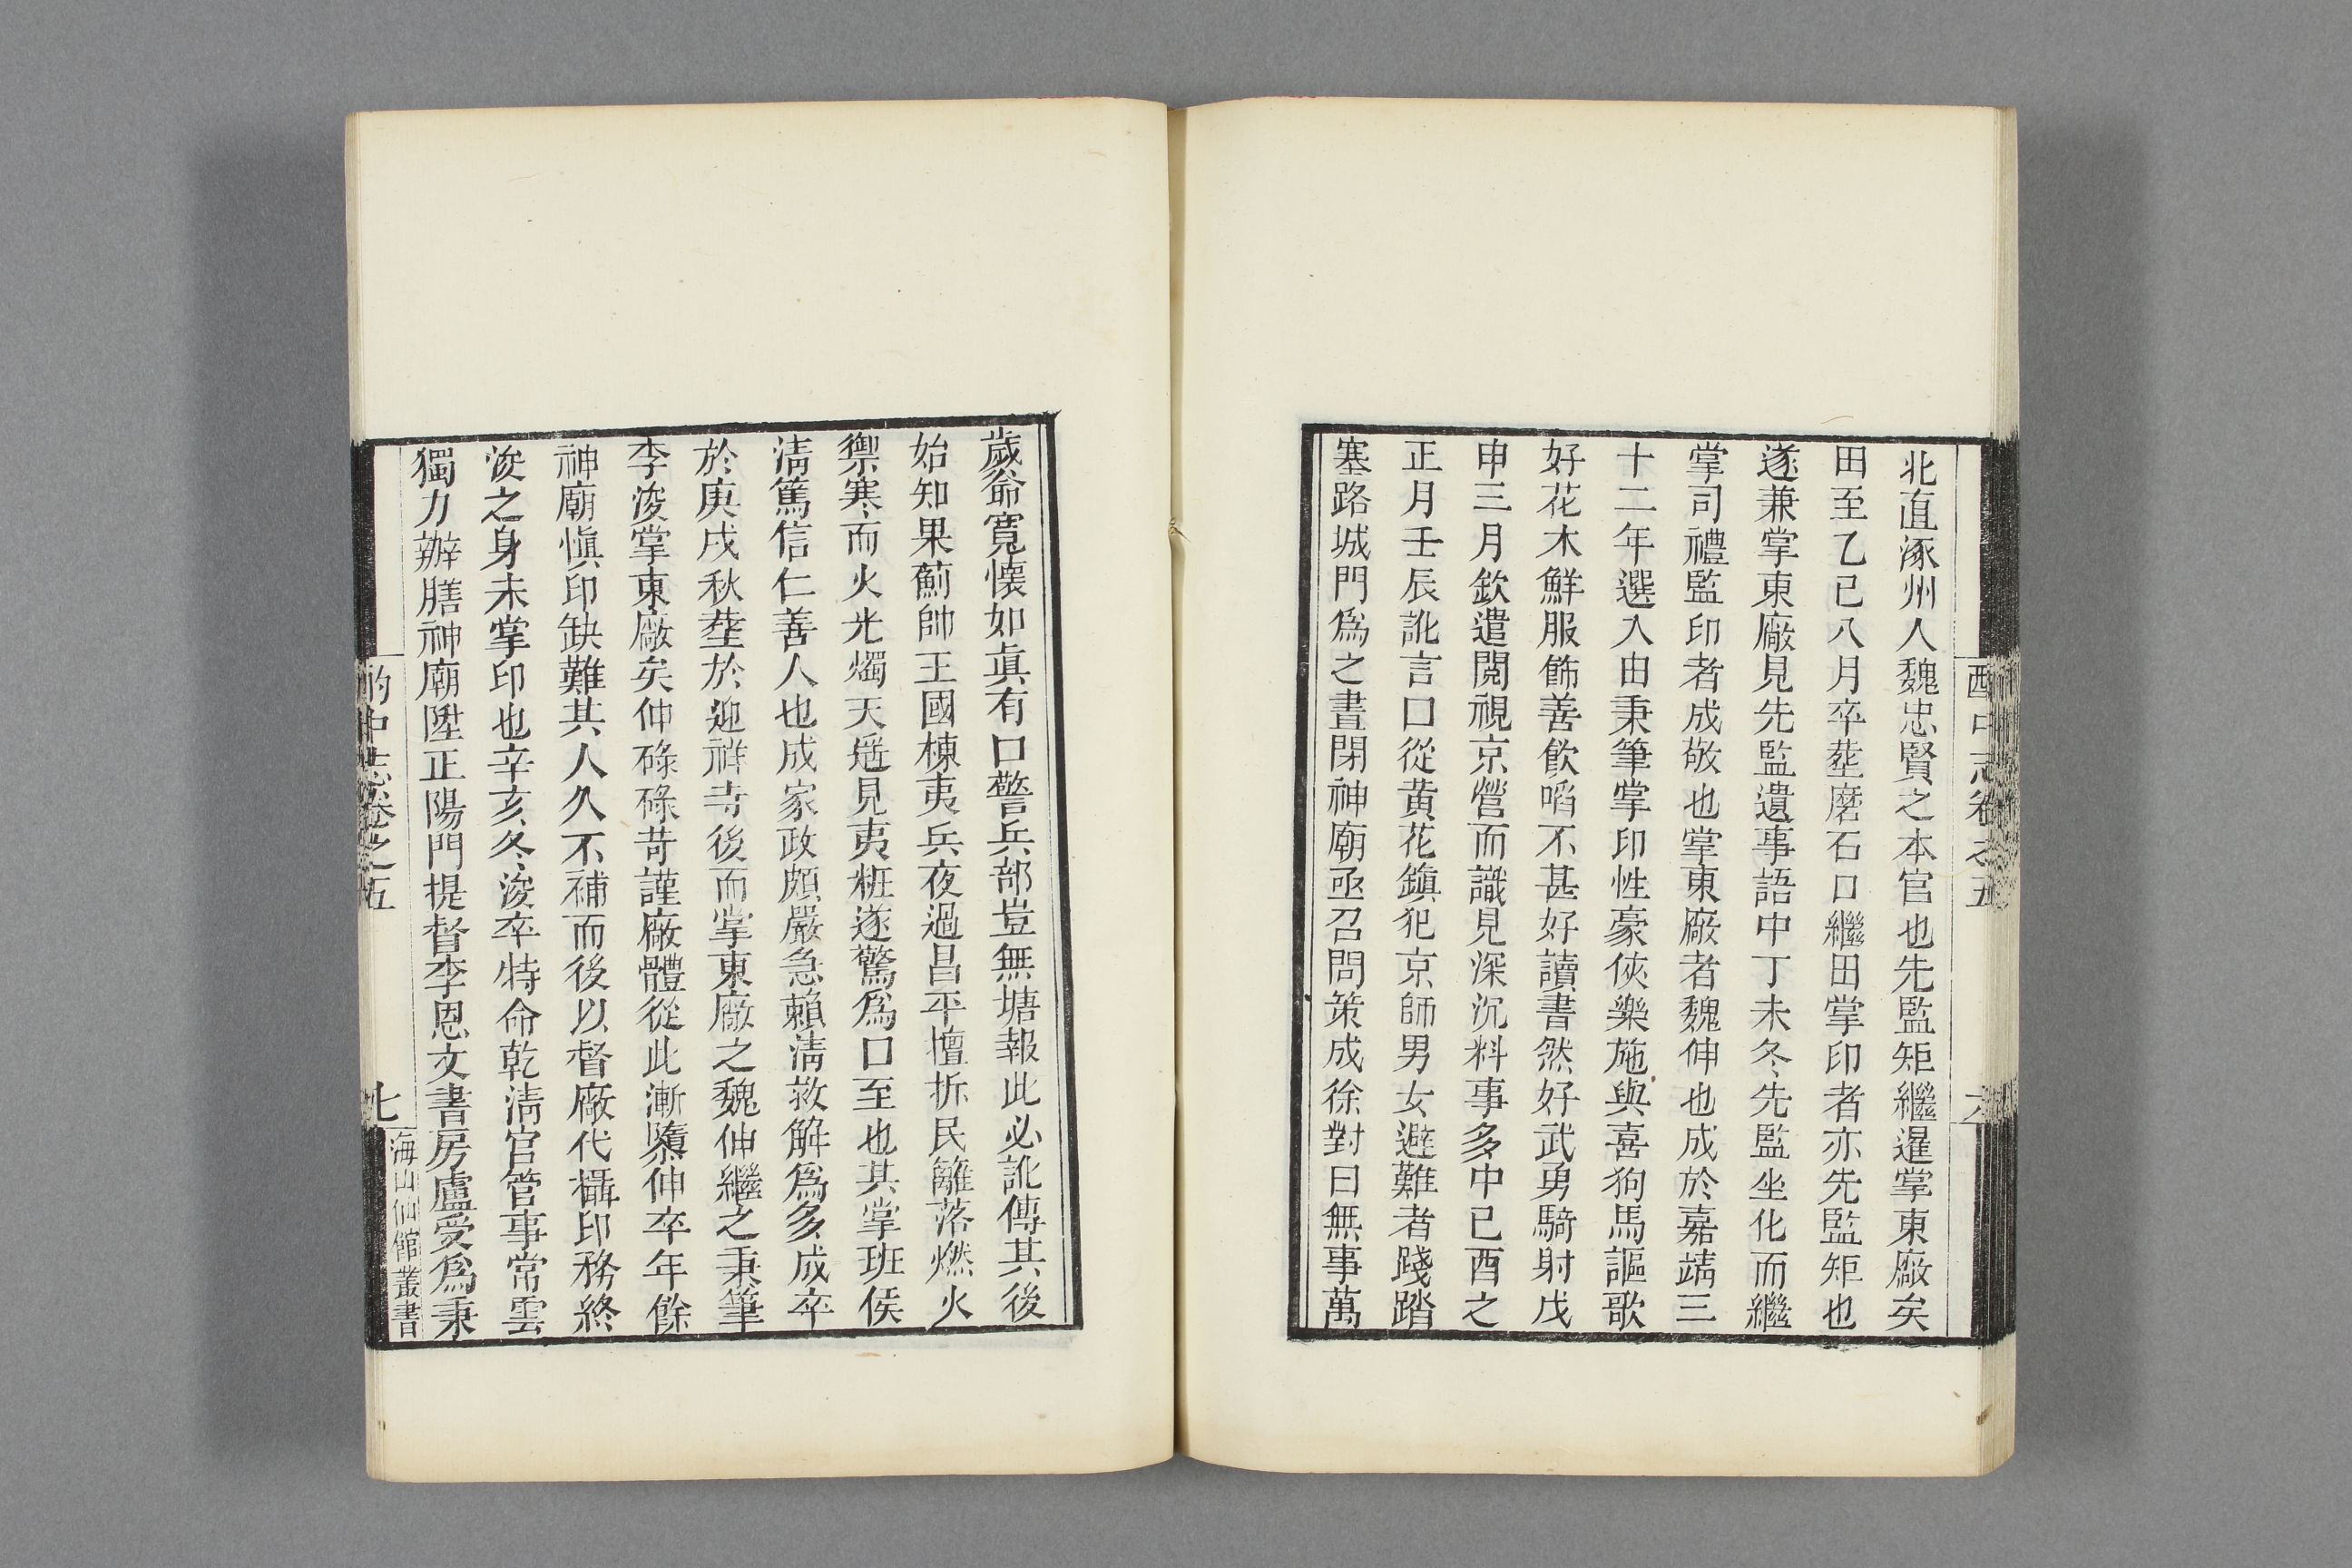 酌中志卷之五
六
北直涿州人魏忠賢之本官也先監矩繼暹掌東廠矣
田至乙巳八月卒塟磨石口繼田掌印者亦先監矩也
遂兼掌東廠見先監遺事語中丁未冬先監坐化而繼
掌司禮監印者成敬也掌東廠者魏伸也成於嘉靖三
十二年選入由秉筆掌印性豪俠樂施與喜狗馬謳歌
好花木鮮服飾善飮啗不甚好讀書然好武勇騎射戊
申三月欽遣閱視京營而識見深沉料事多中己酉之
正月壬辰訛言口從黃花鎮犯京師男女避難者踐踏
塞路城門爲之晝閉神廟亟召問策成徐對曰無事萬
歲爺寬懷如眞有口警兵部豈無塘報此必訛傳其後
始知果薊帥王國棟夷兵夜過昌平擅拆民籬落燃火
禦寒而火光燭天廵見夷粧遂驚爲口至也其掌班侯
淸篤信仁善人也成家政頗嚴急賴淸救解爲多成卒
於庚戌秋塟於迎祥寺後而掌東廠之魏伸繼之秉筆
李浚掌東廠矣伸碌碌苛謹廠體從此漸隳伸卒年餘
神廟愼印缺難其人久不補而後以督廠代攝印務終
浚之身未掌印也辛亥冬浚卒特命乾淸宮管事常雲
獨力辦膳神廟陞正陽門提督李恩文書房盧受爲秉
酌中志卷之五
七
海山仙館叢書